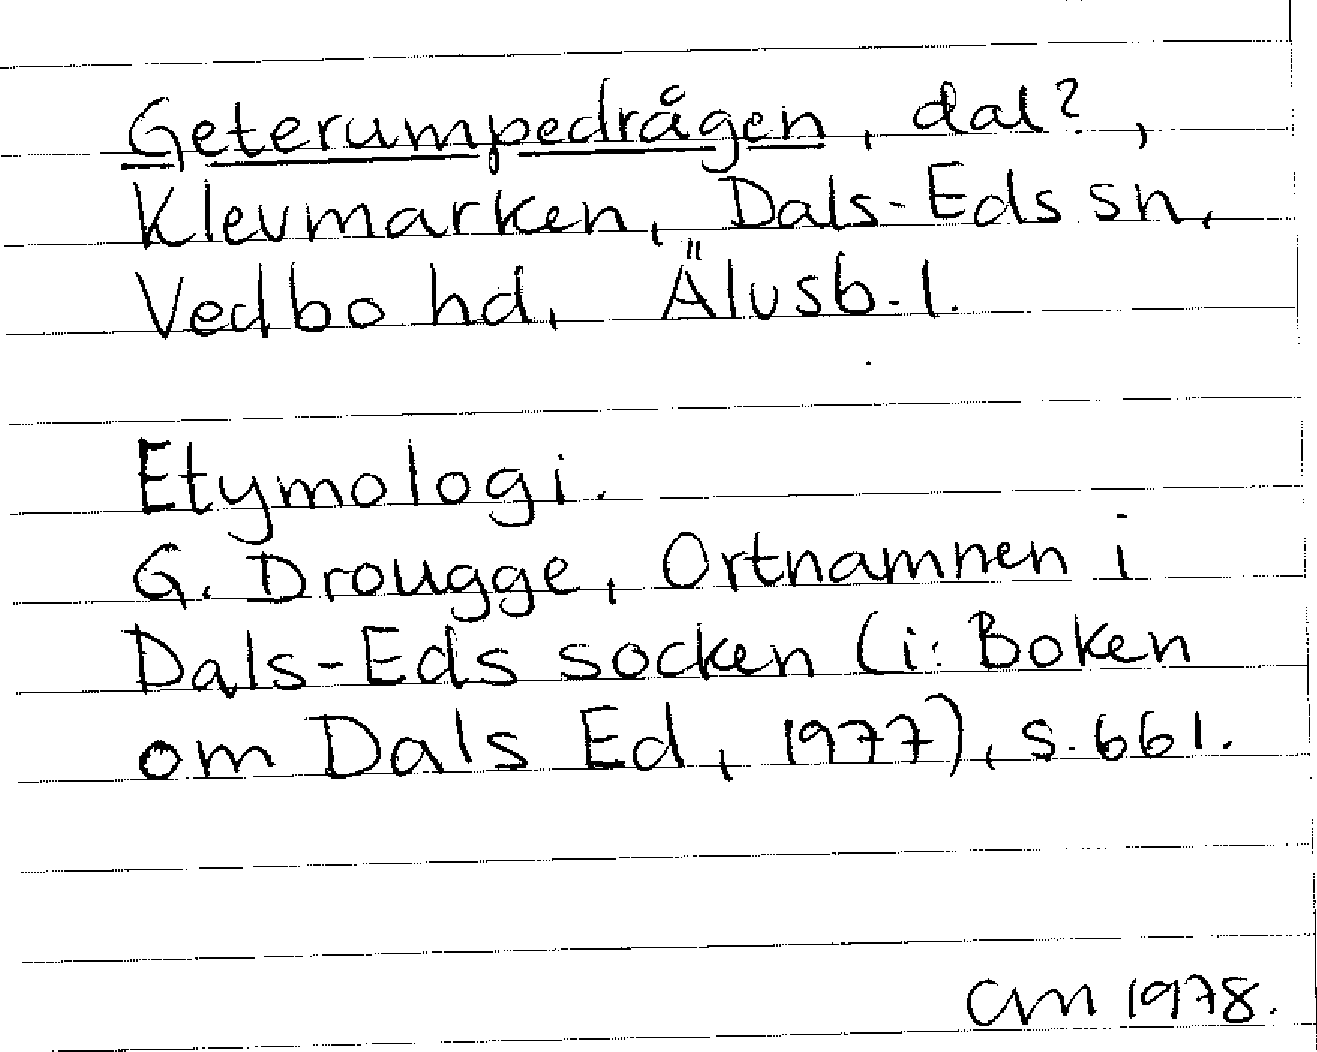 Geterumpedrågen, dal?,
Klevmarken, Dals-Eds sn,
Vedbo hd, Älvsb. l.
Etymologi.
G. Drougge, Ortnamnen i
Dals-Eds socken (i: Boken
om Dals Ed, 1977), s. 661.
CM 1978.